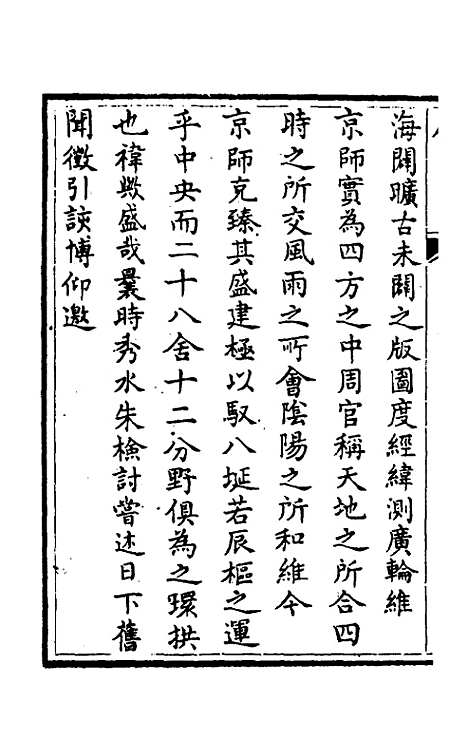 海闢曠古未闢之版圖度經緯測廣輪維
京師實為四方之中周官稱天地之所合四
時之所交風雨之所會陰陽之所和維今
京師克臻其盛建極以馭八埏若辰樞之運
乎中央而二十八舍十二分野俱為之環拱
也禕歟盛哉曩時秀水朱檢討嘗述日下舊
聞徵引談博仰邀